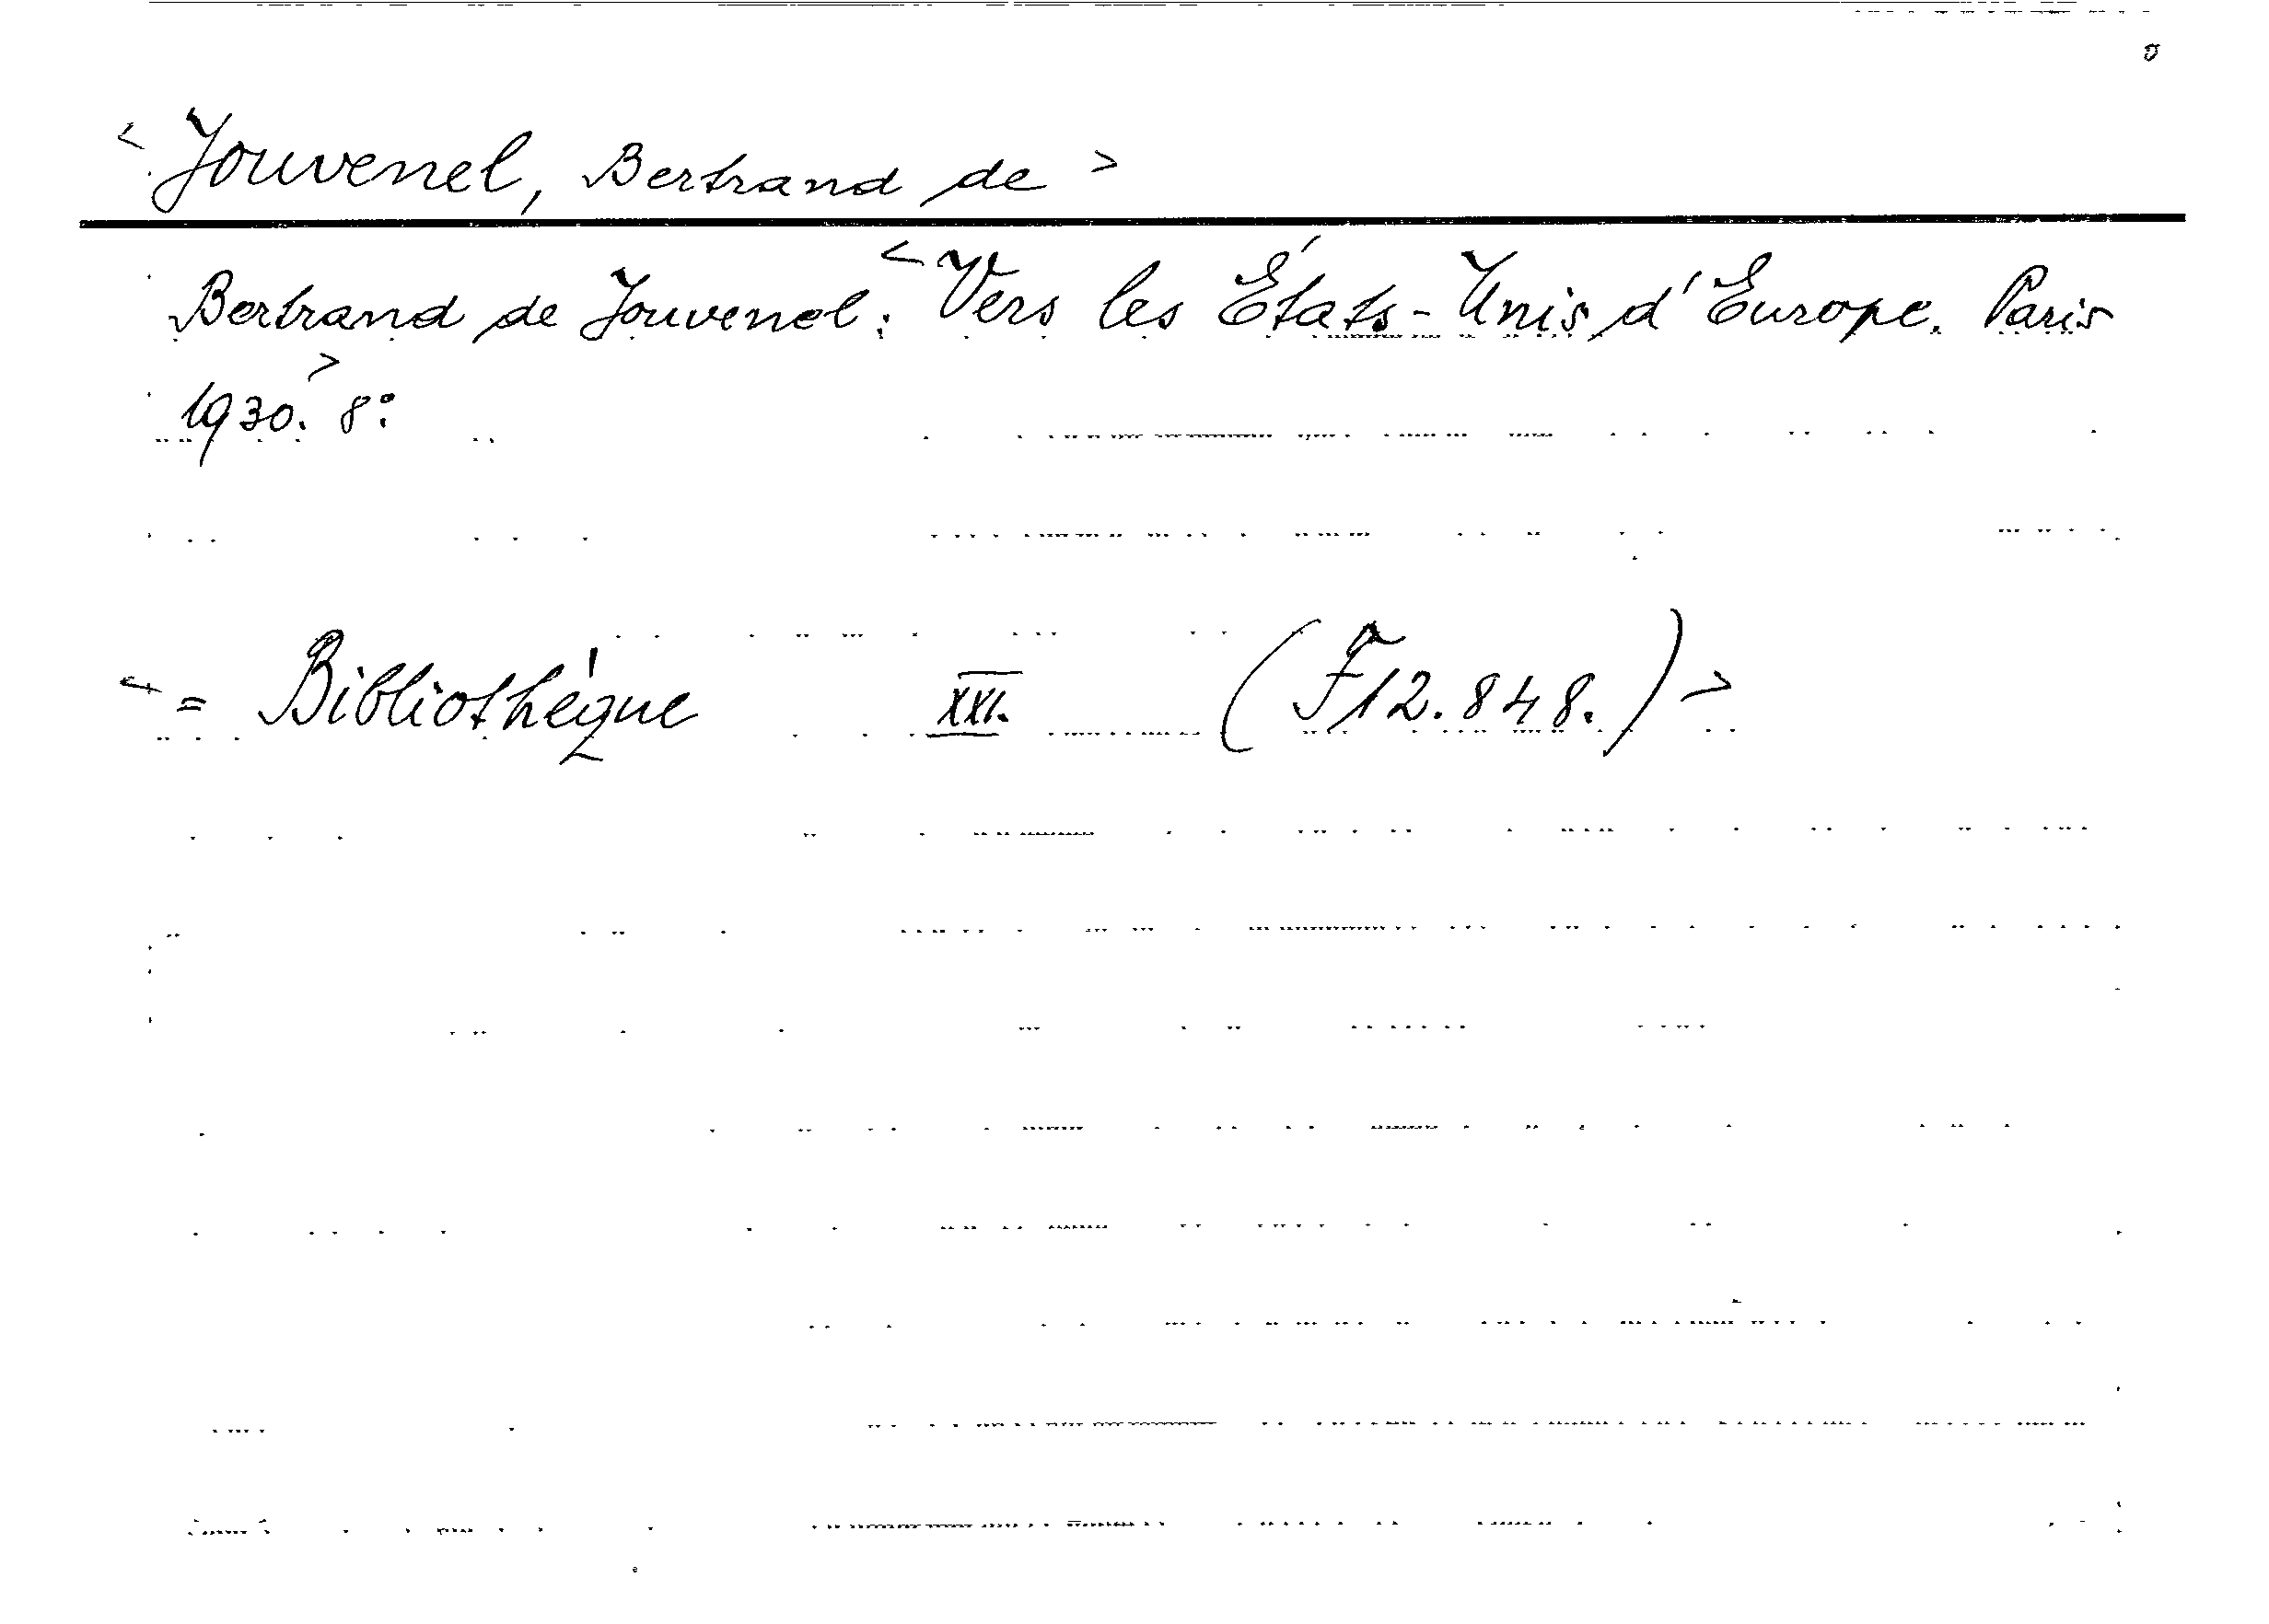 < Jouvenel, Bertrand de >
Bertrand de Jouvenel: < Vers les États-Unis d'Europe. Paris
1930. > 8:
< = Bibliothèque XXI. (F12.848.) >